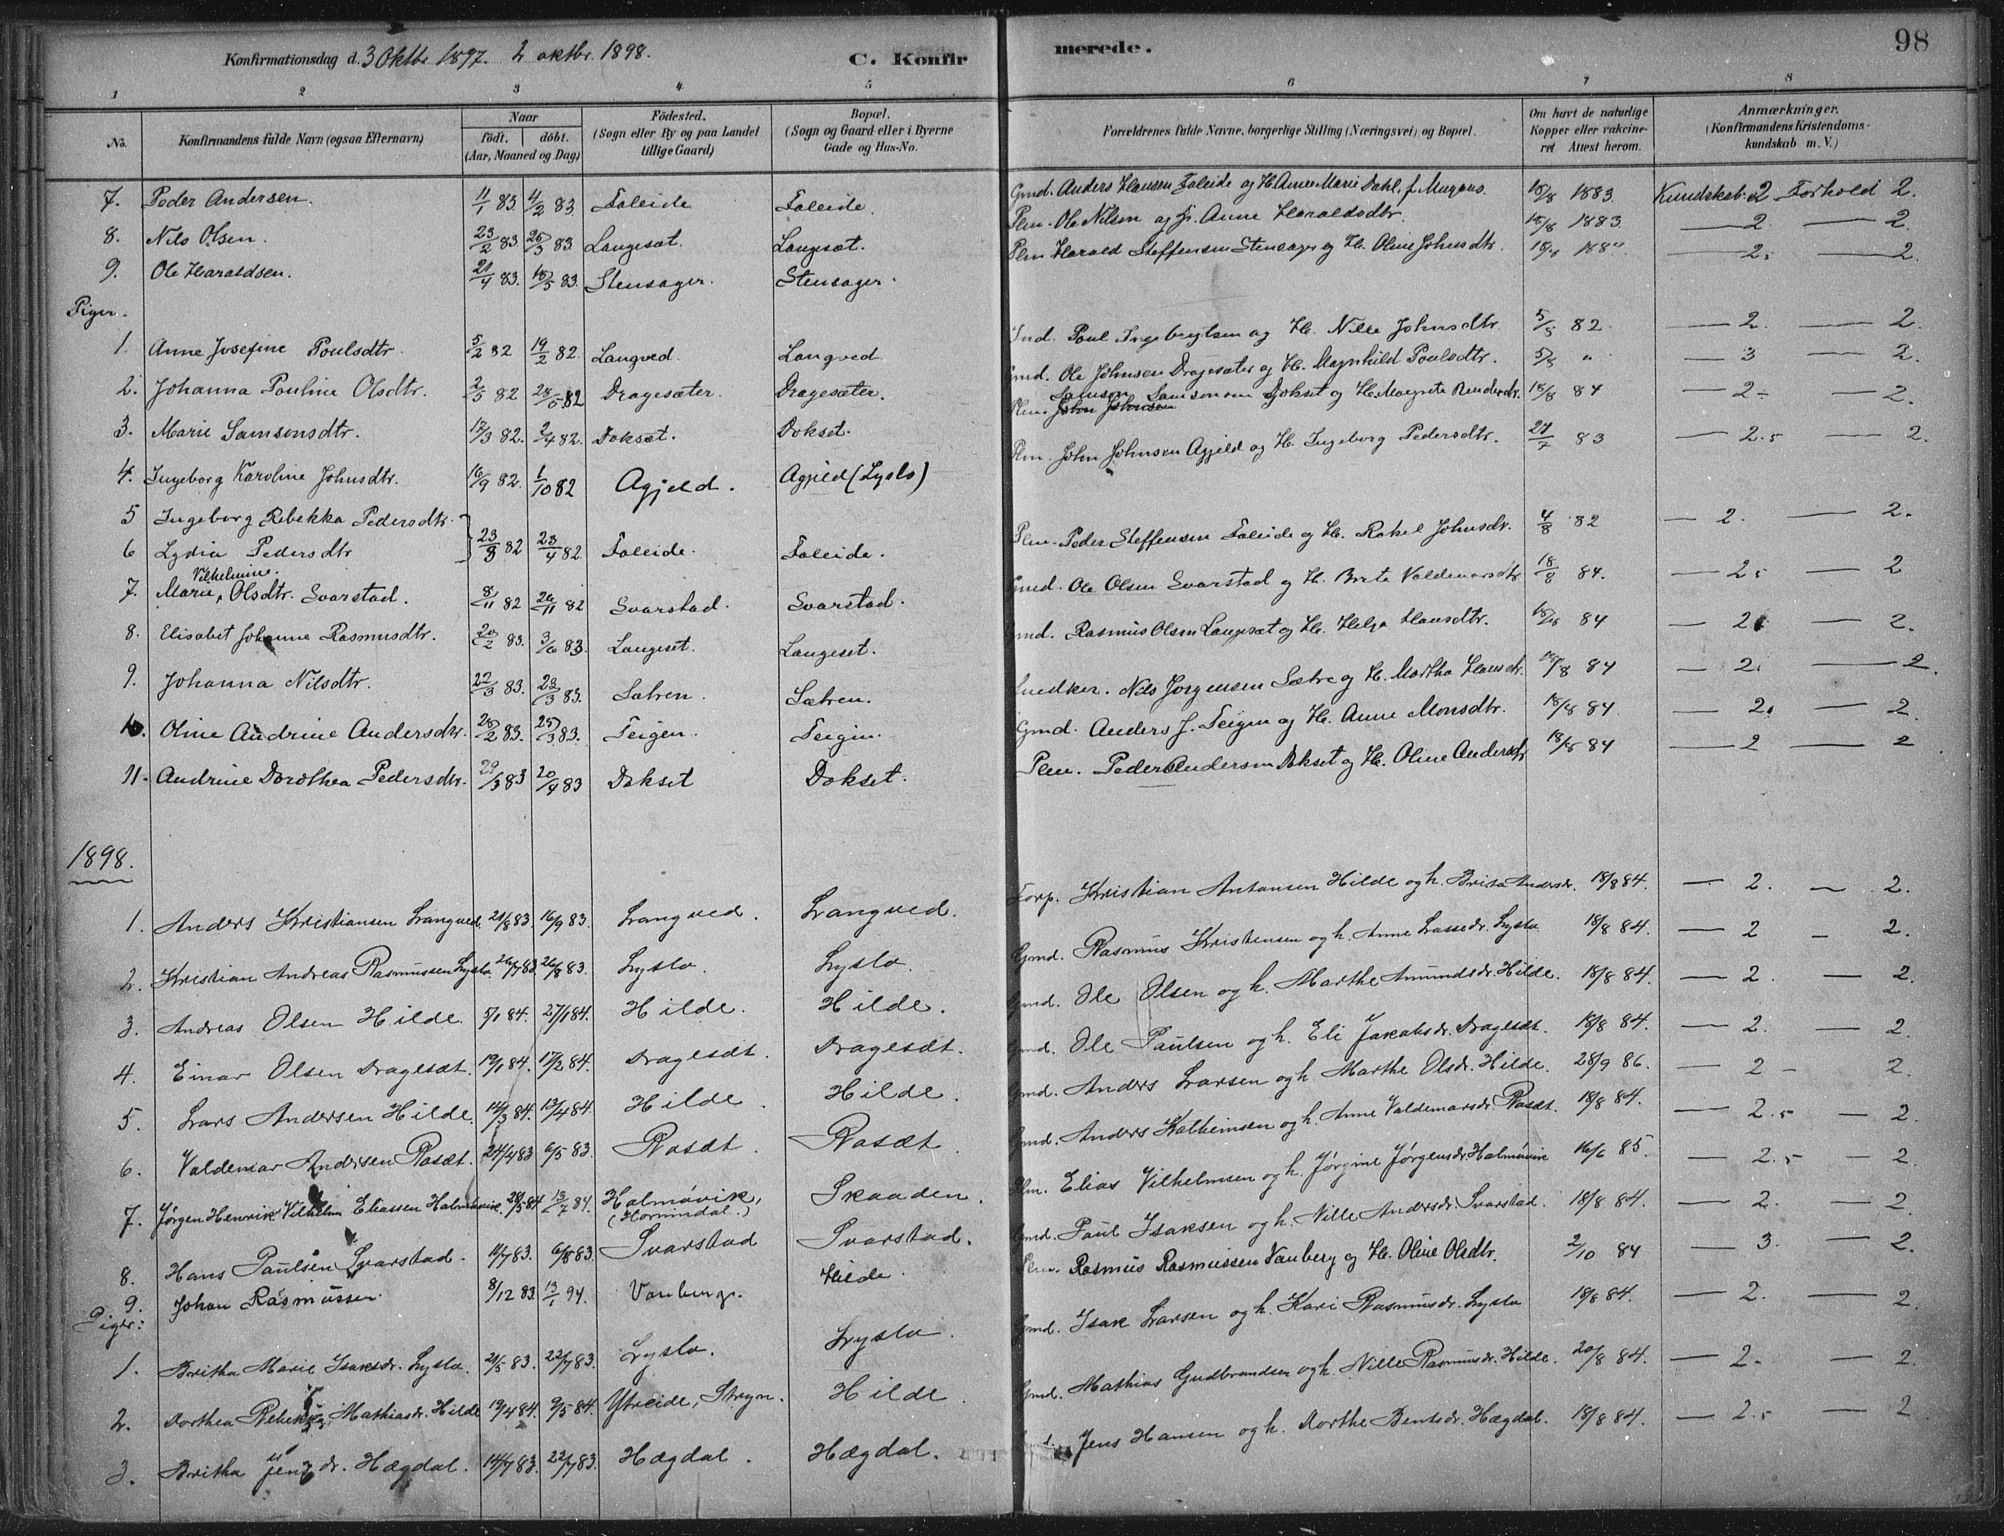 Konfirmationsdag d. 3 Oktbr. 1897. 2 oktbr. 1898. C. Konfirmerede. 98
1 2 3 4 5 6 7 8
No. Konfirmandens fulde Navn (ogsaa Efternavn) Naar født. døbt. (Aar, Maaned og Dag) Fødested. (Sogn eller By og paa Landet tillige Gaard) Bopæl. (Sogn og Gaard eller i Byerne Gade og Hus-No. Forældrenes fulde Navne, borgerlige Stilling (Næringsvei) og Bopæl. Om havt de naturlige Kopper eller vakcineret Attest herom. Anmærkninger. (Konfirmandens Kristendomskundskab m. V.)
7. Peder Andersen. 11/1 83. 4/2 83. Faleide Faleide. Gmd. Anders Hansen Faleide og H. Anne Marie Dahl, f. 18/8 1883. Kundskab: 2 Forhold 2.
8. Nils Olsen. 23/2 83 26/3 83 Langesæt. Langesæt. Plm. Ole Nilsen og H. Anne Haraldsdtr. 18/8 1883. — 2. — 2.
9. Ole Haraldsen. 21/4 83. 15/5 83. Stensager. Stensager. Plm Harald Steffensen Stensager og H. Oline Johnsdtr. — 2. — 2.
Piger.
1. Anne Josefine Poulsdtr. 5/2 82 19/2 82. Langved. Langved. Ind. Poul Ingebrigtsen og H. Nille Johnsdtr. 5/8 82 — 2. — 2.
2. Johanna Pauline Olsdtr. 2/5 82 28/5 82 Dragesæter. Dragesæter. Gmd. Ole Johnsen Dragesæter og H. Magnhild Poulsdtr. 5/8 " — 3 — 2.
3. Marie Samsonsdtr. 17/3 82. 2/4 82. Dokset. Dokset. Plm. Samson Samsonsen Dokset og H. Margrete 18/8 84 — 2 — 2.
4. Ingeborg Karoline Johnsdtr. 16/9 82. 1/10 82 Agjeld. Agjeld (Lyslo) Plm. John Johnsen Agjeld og H. Ingeborg Pedersdtr. 27/7 83 — 2.5 — 2.
5 Ingeborg Rebekka Pedersdtr.
6 Lydia Pedersdtr 23/3 82 23/4 82 Faleide. Faleide. Plm. Peder Steffensen Faleide og H. Rakel Johnsdr. 4/8 82 — 2. — 2.
7. Marie Vilhelmine Olsdtr. Svarstad. 8/11 82 26/11 82 Svarstad. Svarstad. Gmd. Ole Olsen Svarstad og H. Brite Valdemarsdtr 18/8 84. — 2.5 — 2
8. Elisabet Johanne Rasmusdtr. 20/2 83. 3/6 83 Langeset. Langeset. Gmd. Rasmus Olsen Langesæt og H. Helga Hansdtr. 18/8 84 — 2 — 2.
9. Johanna Nilsdtr. 22/3 83. 28/3 83. Sætren. Sætren. Snedker. Nils Jørgensen Sætre og H. Martha Hansdtr 18/8 84 — 2. — 2.
10. Oline Andrine Andersdtr. 28/2 83. 25/3 83. Teigen. Teigen. Gmd. Anders J. Teigen og H. Anne Monsdtr. 18/8 84. — 2. — 2.
11. Andrine Dorothea Pedersdtr. 29/3 83 20/4 83 Dokset Dokset. Plm. Peder Andersen Dokset og H. Oline Andersdtr 18/8 84 — 2 — 2.
1898.
1. Anders Kristiansen Langved. 21/8 83. 16/9 83. Langved. Langved. Forp. Kristian Antonsen Hilde og h. Brita Andersdr. 18/8 84. — 2. — 2.
2. Kristian Andreas Rasmussen Lyslo 26/7 83. 26/8 83. Lyslo. Lyslo. Gmd. Rasmus Kristensen og h. Anne Lassedr. Lyslo 18/8 84. — 2 — 2.
3. Andreas Olsen Hilde. 5/1 84. 27/1 84. Hilde. Hilde. Gmd. Ole Olsen og h. Marthe Amundsdr. Hilde. 18/8 84. — 2 — 2.
4. Einar Olsen Dragesæt. 19/1 84. 17/2 84. Dragesæt. Dragesæt. Gmd. Ole Paulsen og h. Eli Jakobsdr. Dragesæt. 18/8 84. — 2. — 2.
5. Lars Andersen Hilde. 14/3 84. 13/4 84. Hilde. Hilde. Gmd. Anders Larsen og h. Marthe Olsdr. Hilde. 28/9 86. — 2 — 2.
6. Valdemar Andersen Rasæt. 24/4 83 6/5 83. Rasæt. Rasæt. Gmd. Anders Kolbeinsen og h. Anne Valdemarsdr. Rasæt. 18/8 84. — 2.5 — 2
7. Jørgen Henrik Vilhelm Eliassen Halmøvik. 28/5 84. 13/7 84. Halmøvik, (Hornindal.) Skaaden. Plm. Elias Vilhelmsen og h. Jørgine Jørgensdr. Halmøvik 16/6 85. — 2.5 — 2
8. Hans Paulsen Svarstad. 11/7 83. 6/8 83. Svarstad Svarstad. Gmd. Paul Isaksen og h. Nille Andersdr. Svarstad. 18/8 84. — 2. — 2
9. Johan Rasmussen 8/12 83 13/1 94. Vanberg. Hilde. Plm. Rasmus Rasmussen Vanberg og H. Oline Olsdtr. 2/10 84 — 3. — 2.
Piger:
1. Britha Marie Isaksdr. Lyslo. 21/5 83. 22/7 83. Lyslo. Lyslo. Gmd. Isak Larsen og h. Kari Rasmusdr. Lyslo 18/8 84. — 2. — 2
2. Dorthea Rebekka Mathiasdr. Hilde 19/4 84. 9/5 84. Ytreide, Stryn. Hilde. Gmd. Mathias Gudbrandsen og h. Nille Rasmusdr. Hilde. 20/8 84. — 2. — 2.
3. Britha Jensdr. Hægdal. 14/7 83. 22/7 83. Hægdal. Hægdal. Jens Hansen og h. Dorthe Bentsdr. Hægdal. 18/8 84. — 2.5 — 2